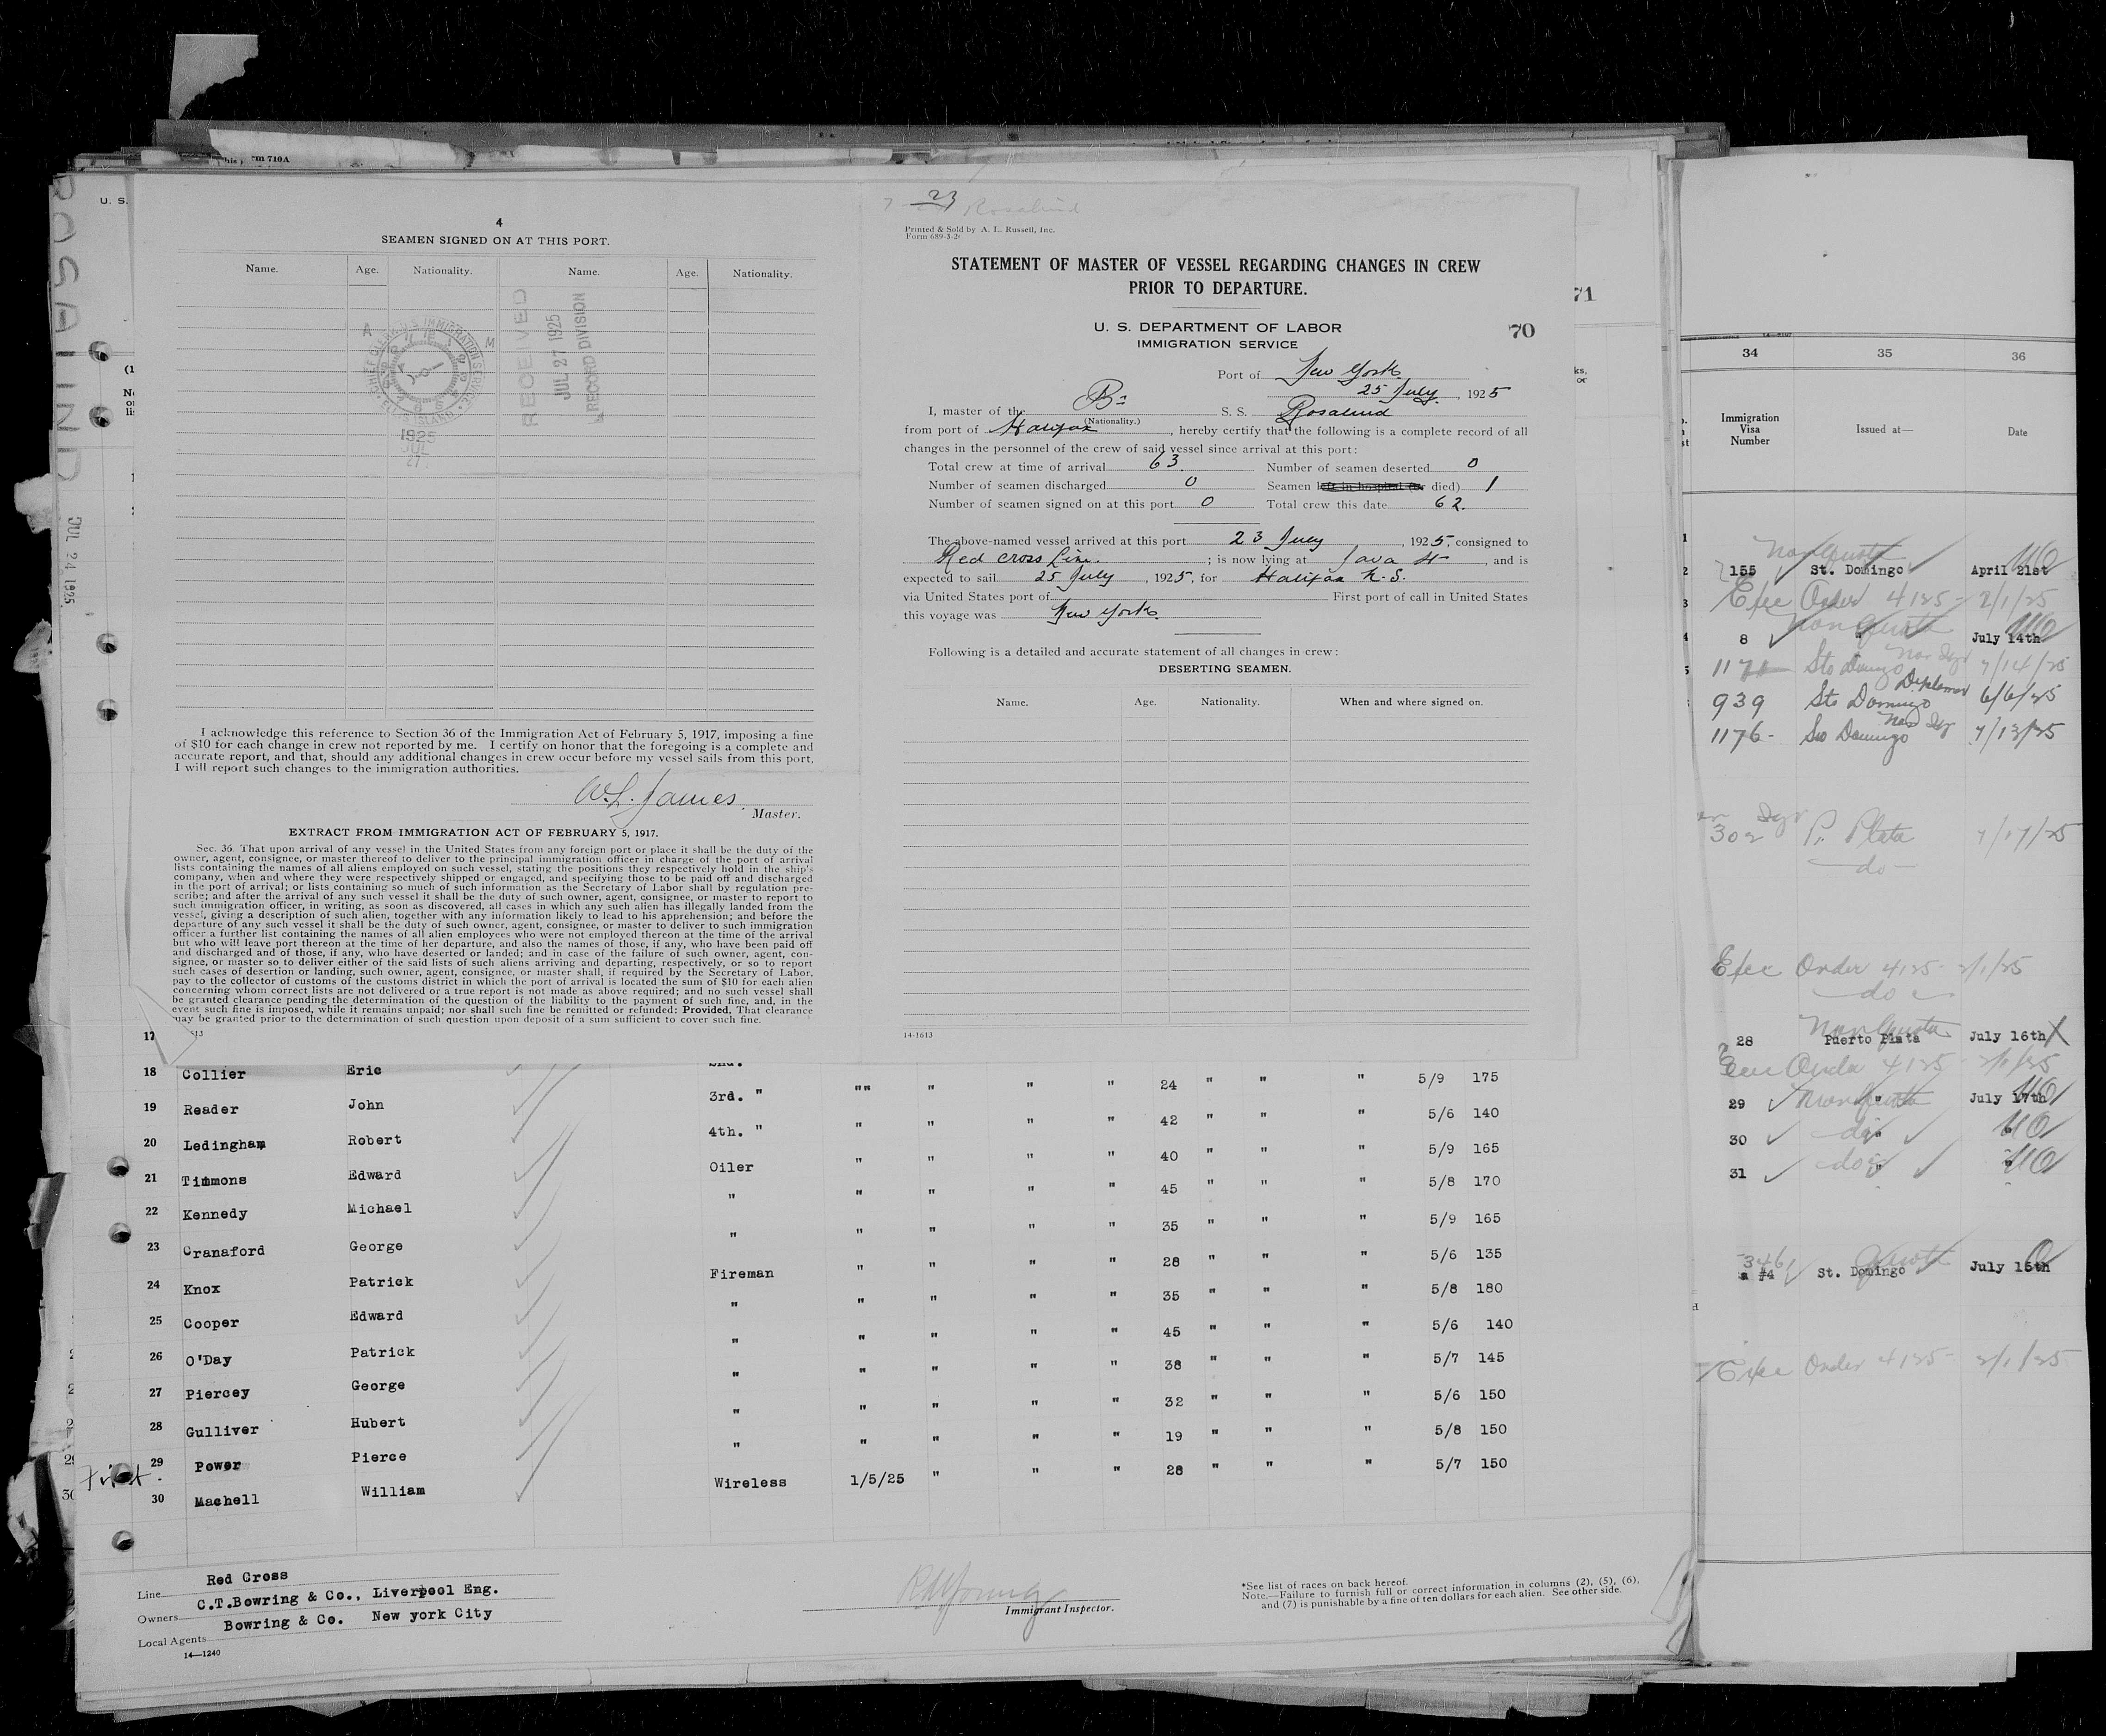 rm 710A
ROSALIND
JUL 24 1925
U. S.
4
SEAMEN SIGNED ON AT THIS PORT.
Name. Age. Nationality. Name. Age. Nationality.
RECEIVED
JUL 27 1925
RECORD DIVISION
1925
JUL
27
I acknowledge this reference to Section 36 of the Immigration Act of February 5, 1917, imposing a fine
of $10 for each change in crew not reported by me. I certify on honor that the foregoing is a complete and
accurate report, and that, should any additional changes in crew occur before my vessel sails from this port,
I will report such changes to the immigration authorities.
W.L. James
Master.
EXTRACT FROM IMMIGRATION ACT OF FEBRUARY 5, 1917.
Sec. 36. That upon arrival of any vessel in the United States from any foreign port or place it shall be the duty of the
owner, agent, consignee, or master thereof to deliver to the principal immigration officer in charge of the port of arrival
lists containing the names of all aliens employed on such vessel, stating the positions they respectively hold in the ship's
company, when and where they were respectively shipped or engaged, and specifying those to be paid off and discharged
in the port of arrival; or lists containing so much of such information as the Secretary of Labor shall by regulation pre-
scribe; and after the arrival of any such vessel it shall be the duty of such owner, agent, consignee, or master to report to
such immigration officer, in writing, as soon as discovered, all cases in which any such alien has illegally landed from the
vessel, giving a description of such alien, together with any information likely to lead to his apprehension; and before the
departure of any such vessel it shall be the duty of such owner, agent, consignee, or master to deliver to such immigration
officer a further list containing the names of all alien employees who were not employed thereon at the time of the arrival
but who will leave port thereon at the time of her departure, and also the names of those, if any, who have been paid off
and discharged and of those, if any, who have deserted or landed; and in case of the failure of such owner, agent, con-
signee, or master so to deliver either of the said lists of such aliens arriving and departing, respectively, or so to report
such cases of desertion or landing, such owner, agent, consignee, or master shall, if required by the Secretary of Labor,
pay to the collector of customs of the customs district in which the port of arrival is located the sum of $10 for each alien
concerning whom correct lists are not delivered or a true report is not made as above required; and no such vessel shall
be granted clearance pending the determination of the question of the liability to the payment of such fine, and, in the
event such fine is imposed, while it remains unpaid; nor shall such fine be remitted or refunded: Provided, That clearance
may be granted prior to the determination of such question upon deposit of a sum sufficient to cover such fine.
23
Rosalind
Printed & Sold by A. L. Russell, Inc.
Form 689-3-2
STATEMENT OF MASTER OF VESSEL REGARDING CHANGES IN CREW
PRIOR TO DEPARTURE.
U. S. DEPARTMENT OF LABOR
IMMIGRATION SERVICE
70
71
Port of New York
25 July, 1925
I, master of the Br S. S. Rosalind
(Nationality.)
from port of Halifax, hereby certify that the following is a complete record of all
changes in the personnel of the crew of said vessel since arrival at this port:
Total crew at time of arrival 63. Number of seamen deserted 0
Number of seamen discharged 0 Seamen left in hospital (or died) 1
Number of seamen signed on at this port 0 Total crew this date 62.
The above-named vessel arrived at this port 23 July, 1925, consigned to
Red Cross Line.; is now lying at Java St, and is
expected to sail 25 July, 1925, for Halifax N.S.
via United States port of First port of call in United States
this voyage was New York.
Following is a detailed and accurate statement of all changes in crew:
DESERTING SEAMEN.
Name. Age. Nationality. When and where signed on.
14-1613
17
18 Collier Eric 2nd. "" " " " 24 " " " 5/9 175
19 Reader John 3rd. " " " " " 42 " " " 5/6 140
20 Ledingham Robert 4th. " " " " " 40 " " " 5/9 165
21 Timmons Edward Oiler " " " " 45 " " " 5/8 170
22 Kennedy Michael " " " " " 35 " " " 5/9 165
23 Cranaford George " " " " " 28 " " " 5/6 135
24 Knox Patrick Fireman " " " " 35 " " " 5/8 180
25 Cooper Edward " " " " " 45 " " " 5/6 140
26 O'Day Patrick " " " " " 38 " " " 5/7 145
27 Piercey George " " " " " 32 " " " 5/6 150
28 Gulliver Hubert " " " " " 19 " " " 5/8 150
29 Power Pierce " " " " " 28 " " " 5/7 150
30 Machell William Wireless 1/5/25 " " "
First.
Line Red Cross
Owners C.T.Bowring & Co., Liverpool Eng.
Local Agents Bowring & Co. New york City
14—1240
Immigrant Inspector.
*See list of races on back hereof.
Note.—Failure to furnish full or correct information in columns (2), (5), (6),
and (7) is punishable by a fine of ten dollars for each alien. See other side.
34 35 36
Immigration
Visa
Number
Issued at—
Date
Non Quota
155 St. Domingo April 21st
Exec Order 4125 - 2/1/25
Non Quota
8 " July 14th
1171 Sto Domingo 7/14/25
939 Sto Domingo Diplomat 6/6/25
1176 - Sto Domingo 7/13/25
302 P. Plata 7/17/25
do
Exec Order 4125 - 2/1/25
do
Non Quota
28 Puerto Plata July 16th
Exec Order 4125 - 2/1/25
29 Non Quota July 17th
30 do "
31 do "
346 Quota
#4 St. Domingo July 15th
Exec Order 4125 - 2/1/25